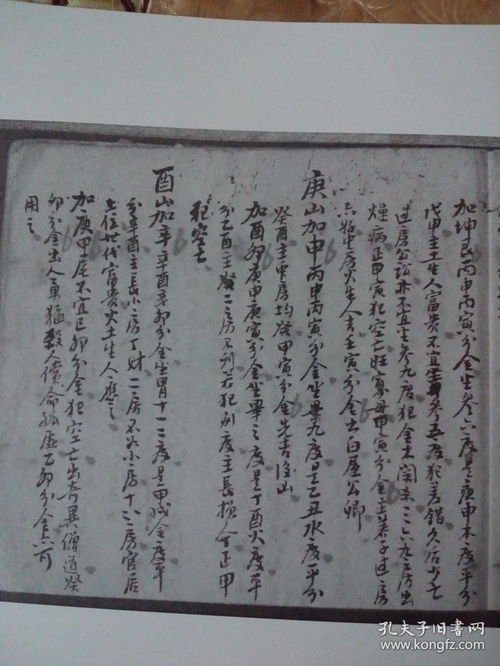 加坤艮丙申丙寅分金坐参六度是庚申木度平分
戊申主土生人富贵不宜坐参五度犯差錯久后少亡
过房公訟亦不宜坐参九度犯金木関系二六九三房出
燥病正甲寅犯空亡旺寡母甲寅分金主养子过房
六指中房火生人去壬寅分金出白屋公卿
庚山加申丙申丙寅分金坐畢九度是乙丑水度平分
癸酉主中房均發甲寅分金先吉後凶
加酉卯庚申庚寅分金坐畢之度是丁酉火度平
分乙酉主發二三房不利若犯別度主長損丁正甲
犯空亡
酉山加辛辛酉辛卯分金坐胃十二度是甲戌金度平
分辛酉主長小房丁財二房不如小房十六房官居
土位世代富貴火土生人應之
加庚甲尾不宜巳卯分金犯空亡出奇異僧道癸
卯分金出人勇猛殺人償命孤虚乙卯分金六可
用之
孔夫子旧书网
www.kongfz.com